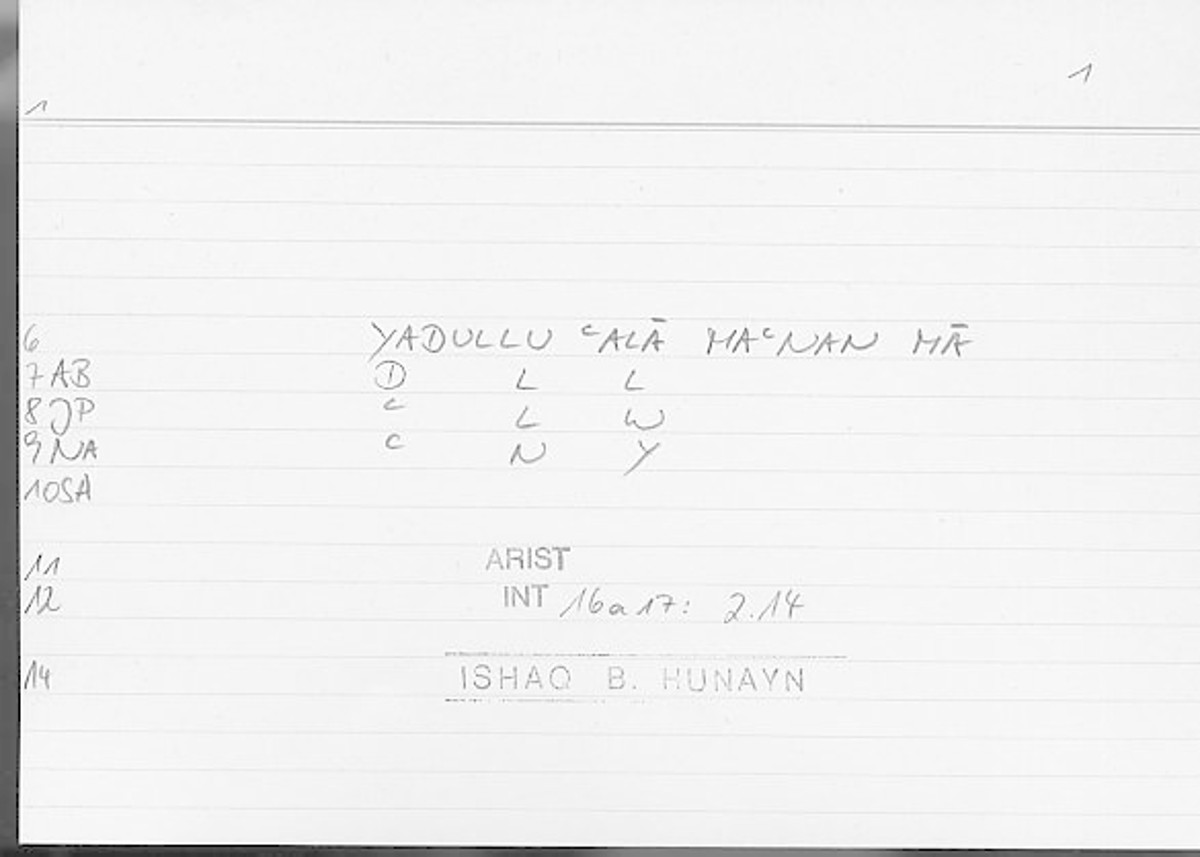 1
1
6 YADULLU ᶜALĀ MAᶜNAN MĀ
7 AB D L L
8 JP ᶜ L W
9 NA ᶜ N Y
10 SA
11 ARIST
12 INT 16a17: 2.14
14 ISHAQ B. HUNAYN